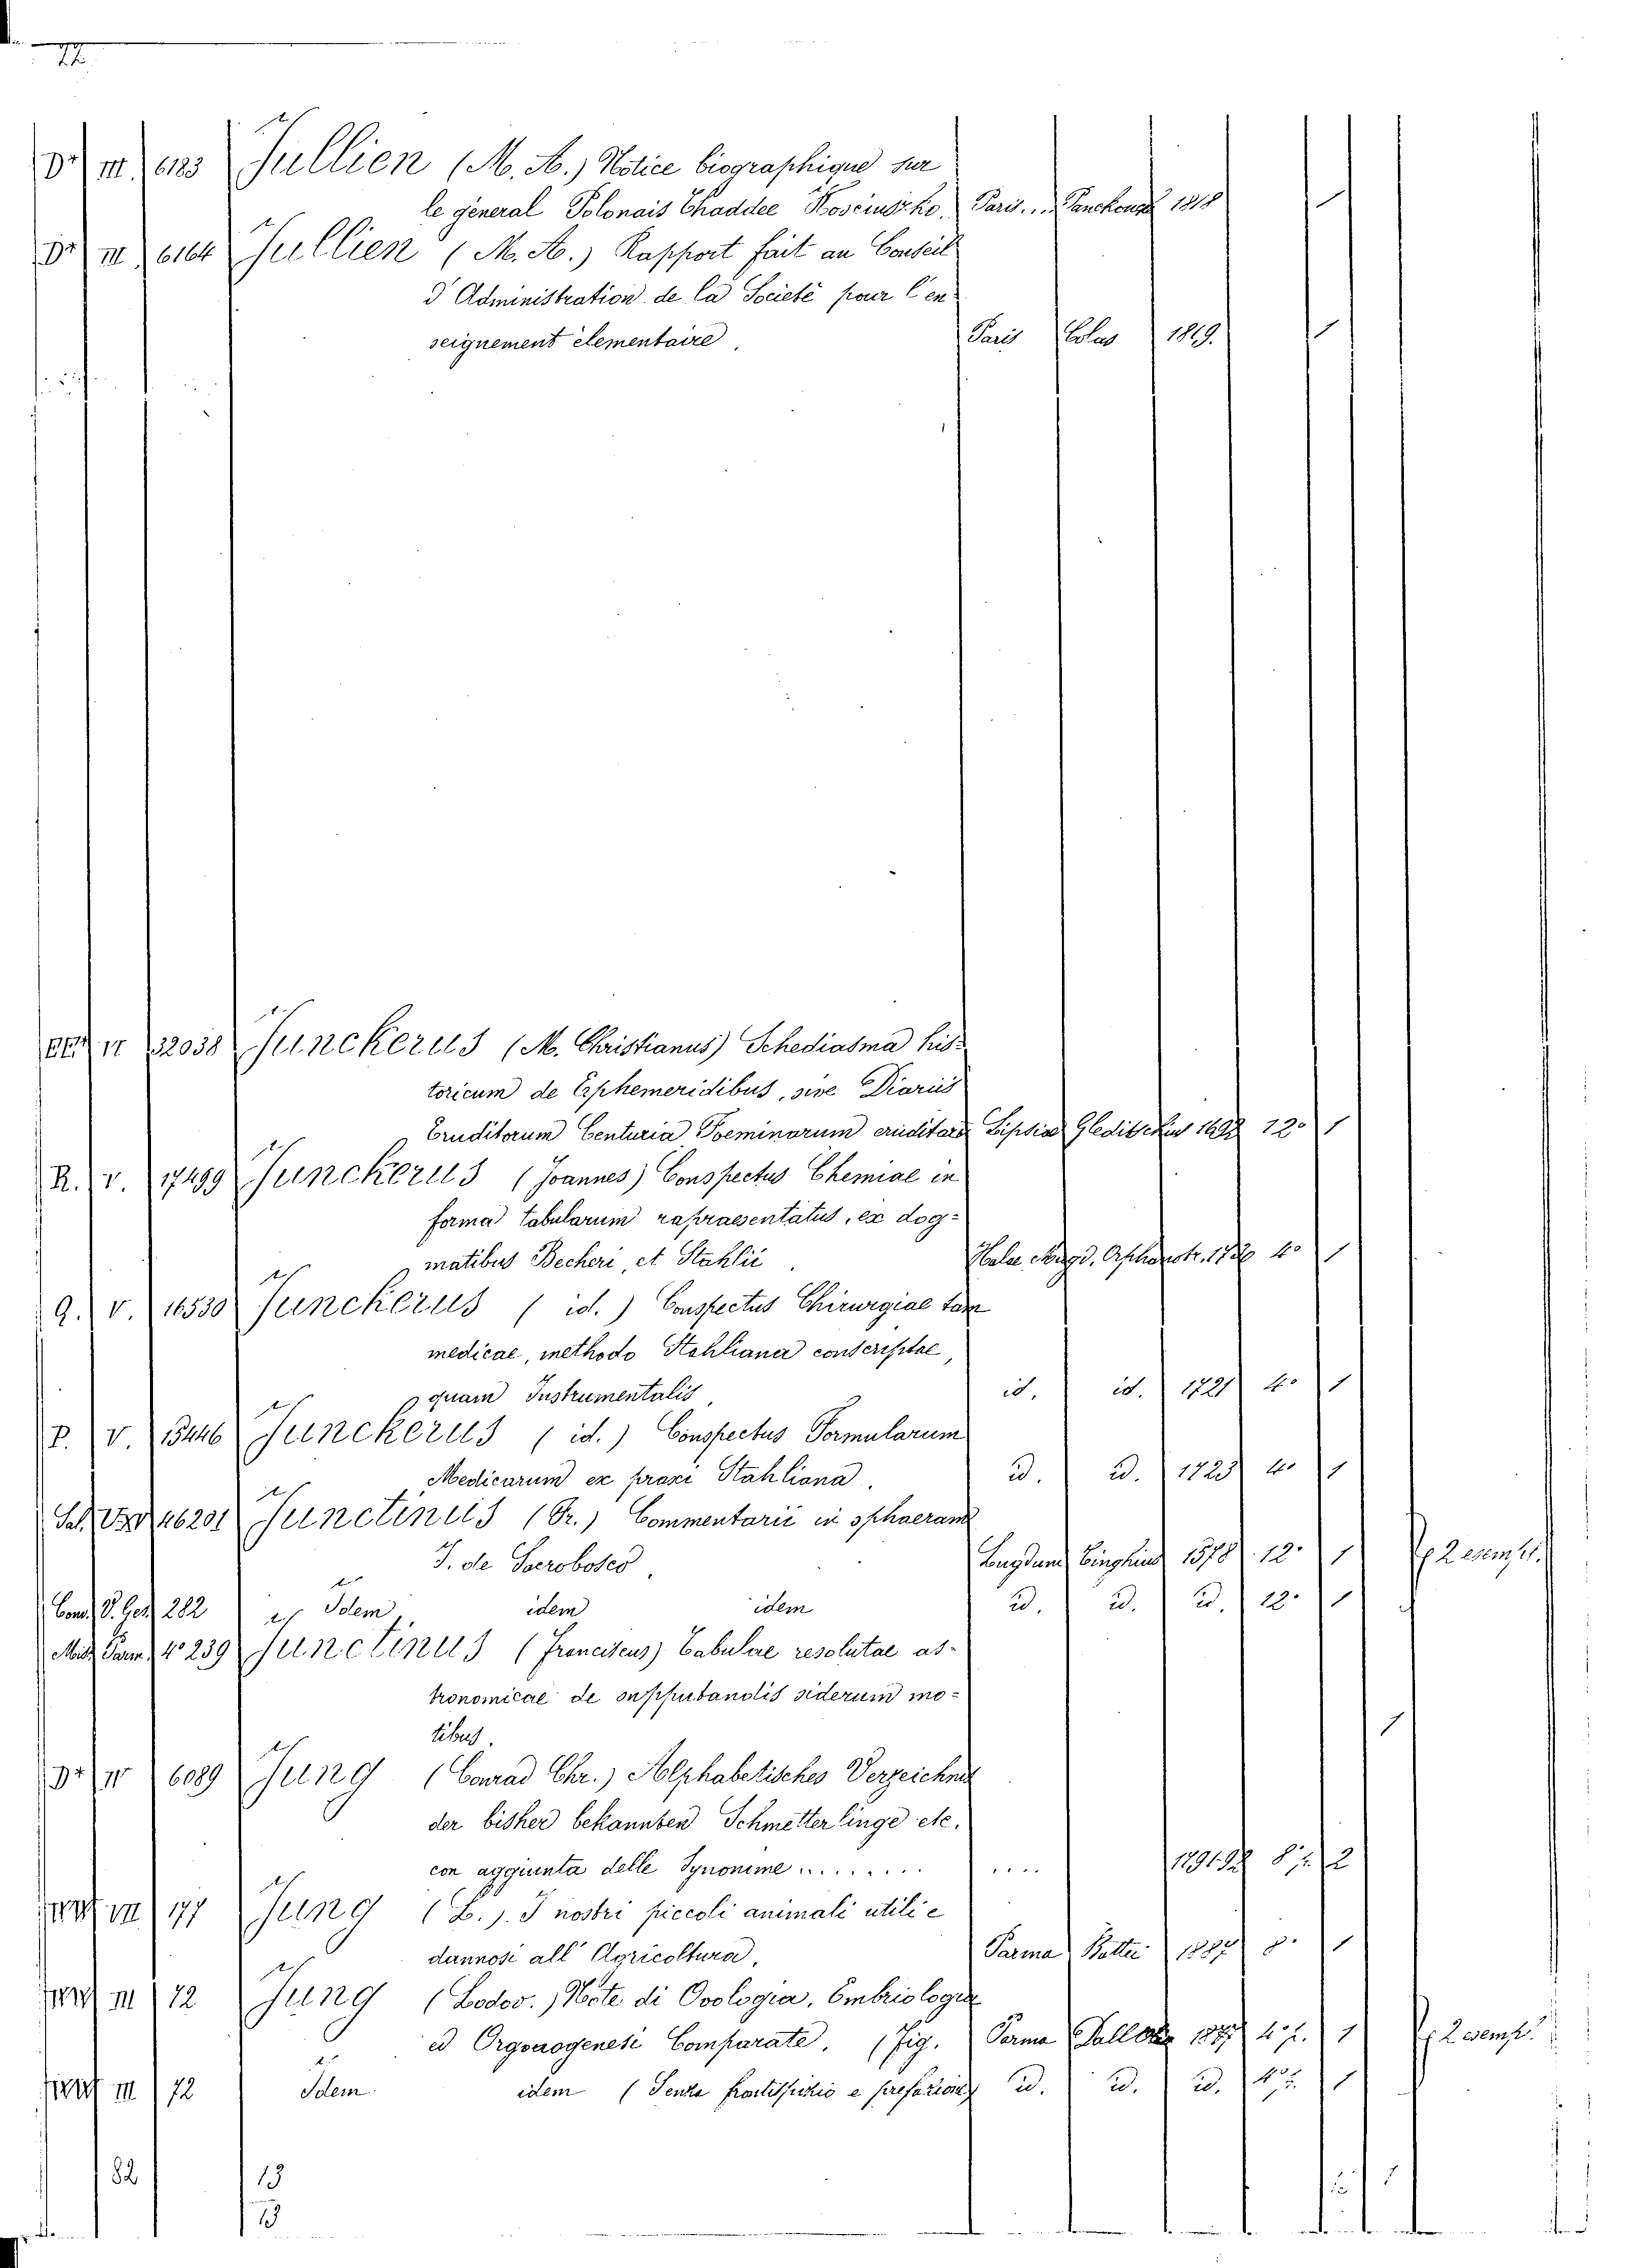 Dr III. 6123 Jullien (M. A.) Notice biographique sur
le géneral Polonais Thaddee Kosciuszko. Paris... Panckouck 1818 1
Dr III 6164 Jullien (M. A.) Rapport fait au Conseil
d'Administration de la Societé pour l'en-
seignement élementaire. Paris Colas 1819. 1
IV 32038 Junckerus (M. Christianus) Schediasma his-
toricum de Ephemeridibus, sive Diariis
Eruditorum Centuria Foeminarum eruditarū Lipsiae Gleditschius 1692 12° 1
R. V. 17499 Junckerus (Joannes) Conspectus Chemiae in
forma tabularum rapraesentatus, ex dog-
matibus Becheri, et Stahlii. Halae Magd. Orphanotr. 1730 4° 1
Q. V. 16530 Junckerus (id.) Conspectus Chirurgiae tam
medicae, methodo Stahliana conscriptae,
quam Instrumentalis, id. id. 1721 4° 1
P. V. 15446 Junckerus (id.) Conspectus Formularum
Medicarum ex praxi Stahliana. id. id. 1723 4° 1
Sal. 46201 Junctinus (Fr.) Commentarii in sphaeram
J. de Sacrobosco. Lugduni 1578 12° 1 2 esempl.
Cond. V. Ge 282 Idem, idem idem id. id. id. 12° 1
Misc. Parm. 4° 239 Junctinus (Franciscus) Tabulae resolutae as-
tronomicae de supputandis siderum mo-
tibus. 1
Dr IV 6089 Jung (Conrad Chr.) Alphabetisches Verzeichnis
der bisher bekannten Schmetterlinge etc.
con aggiunta delle Synonime ........ .... 1791.92 8° 2
VII 177 Jung (L.). I nostri piccoli animali utili e
dannosi all'Agricoltura, Parma Battei 1887 8° 1
III 72 Jung (Lodov.) Note di Ovologia, Embriologia
ed Organogenesi Comparate. (Fig. Parma 1877 4° f. 1 2 esempl.
III 72 Idem idem (Senza frontispizio e prefazione) id. id. id. 4° f. 1
82 13
13